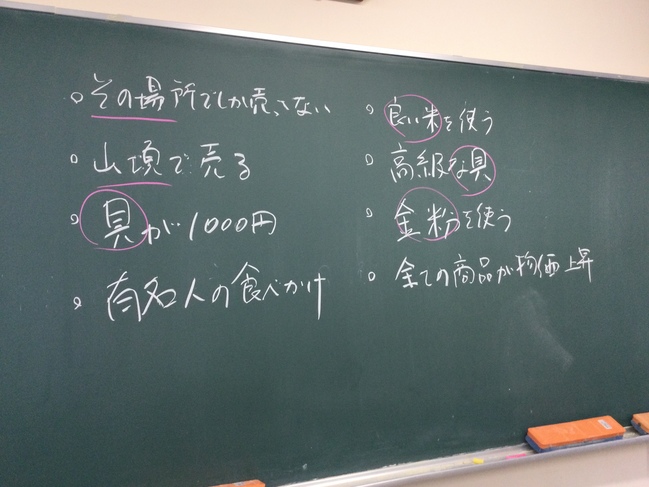 。その場所でしか売ってない
。山頂で売る
。具が1000円
。有名人の食べかけ
。良い米を使う
。高級な具
。金粉を使う
。全ての商品が物価上昇